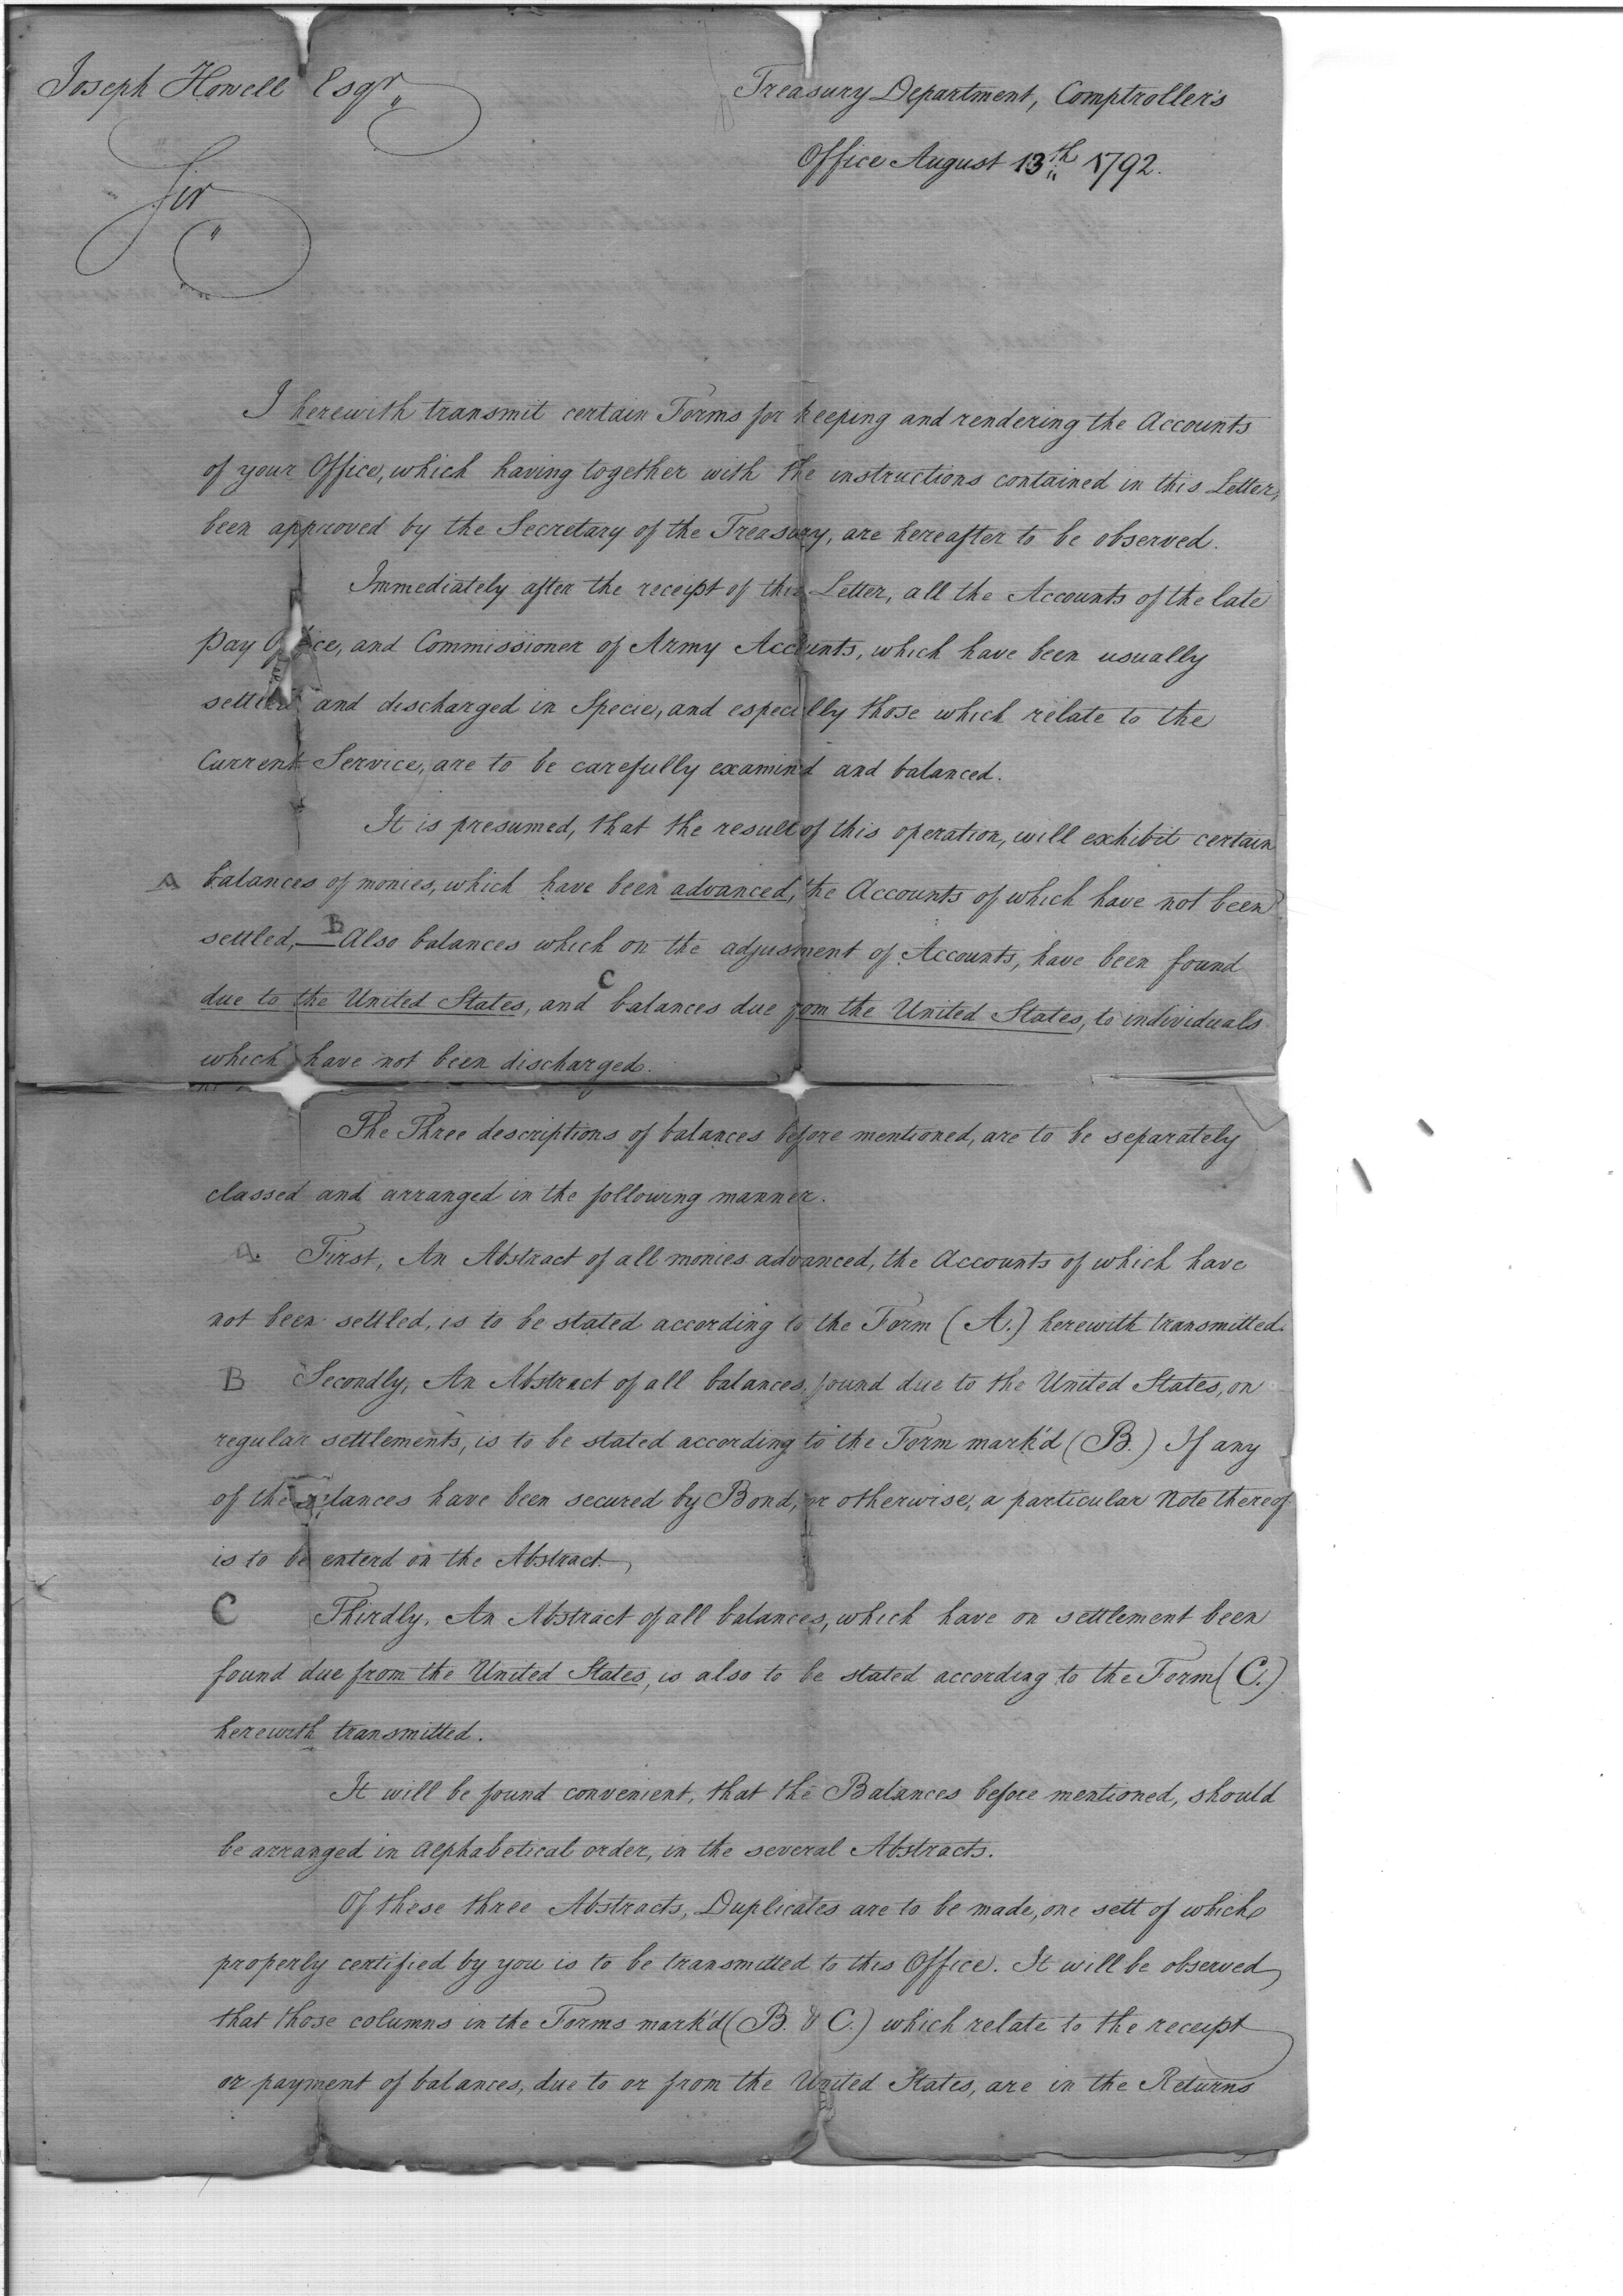 Joseph Howell Esqr.
Treasury Department, Comptroller's
Office August 13th 1792.
Sir
I herewith transmit certain Forms for keeping and rendering the Accounts
of your Office, which having together with the instructions contained in this Letter,
been approved by the Secretary of the Treasury, are hereafter to be observed.
Immediately after the receipt of this Letter, all the Accounts of the late
Pay Office, and Commissioner of Army Accounts, which have been usually
settled and discharged in Specie, and especially those which relate to the
Current Service, are to be carefully examin'd and balanced.
It is presumed, that the result of this operation, will exhibit certain
A balances of monies, which have been advanced, the Accounts of which have not been
settled,— B Also balances which on the adjusment of Accounts, have been found
due to the United States, and C balances due from the United States, to individuals
which have not been discharged.
The Three descriptions of balances before mentioned, are to be separately
classed and arranged in the following manner.
A. First, An Abstract of all monies advanced, the Accounts of which have
not been settled, is to be stated according to the Form (A.) herewith transmitted.
B Secondly, An Abstract of all balances, found due to the United States, on
regular settlements, is to be stated according to the Form mark'd (B.) If any
of the balances have been secured by Bond, or otherwise, a particular Note thereof
is to be enterd on the Abstract.
C Thirdly, An Abstract of all balances, which have on settlement been
found due from the United States, is also to be stated according to the Form (C.)
herewith transmitted.
It will be found convenient, that the Balances before mentioned, should
be arranged in Alphabetical order, in the several Abstracts.
Of these three Abstracts, Duplicates are to be made, one sett of which
properly certified by you is to be transmitted to this Office. It will be observed,
that those columns in the Forms mark'd (B. & C.) which relate to the receipt
or payment of balances, due to or from the United States, are in the Returns